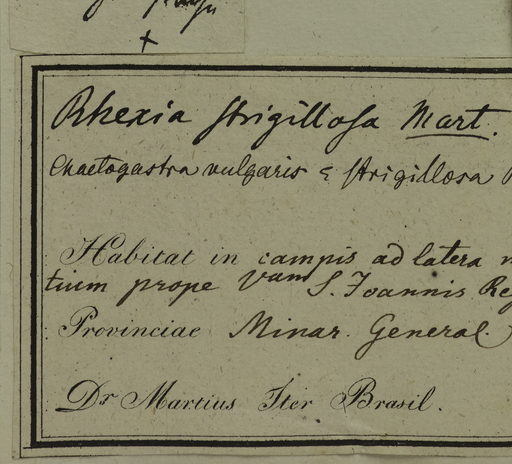 Rhexia strigillosa Mart.
Chaetogastra vulgaris ε strigillosa
Habitat in campis ad latera
tium prope Vam S. Joannis Reg
Provinciae Minar. General.
Dr Martius Iter Brasil.